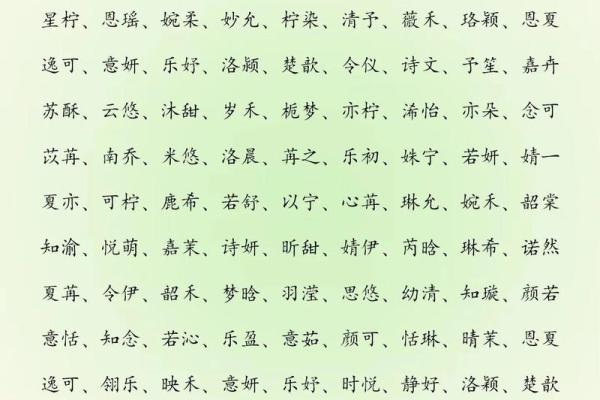 星柠、恩瑶、婉柔、妙允、柠染、清予、薇禾、珞颖、恩夏
逸可、意妍、乐妤、洛颍、楚歆、令仪、诗文、予笙、嘉卉
苏酥、云悠、沐甜、岁禾、栀梦、亦柠、浠怡、亦朵、念可
苡苒、南乔、米悠、洛晨、苒之、乐初、姝宁、若妍、婧一
夏亦、可柠、鹿希、若舒、以宁、心苒、琳允、婉禾、韶棠
知渝、悦萌、嘉茉、诗妍、昕甜、婧伊、芮晗、琳希、诺然
夏苒、令伊、韶禾、梦晗、羽滢、思悠、幼清、知璇、颜若
意恬、知念、若沁、乐盈、意茹、颜可、恬琳、晴茉、恩夏
逸可、翎乐、映禾、意妍、乐妤、时悦、静好、洛颖、楚歆